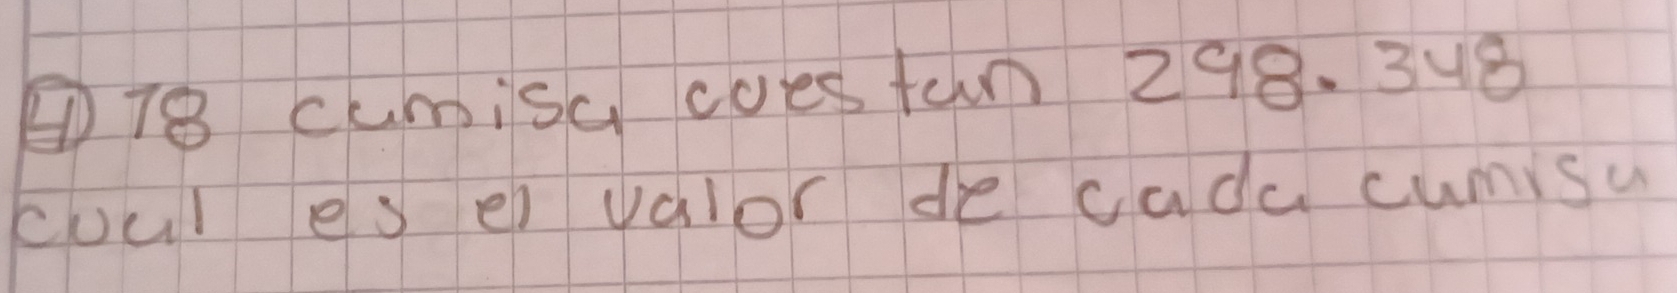 4) 78 camisa cuestan 298.348
cual es el valor de cada camisa